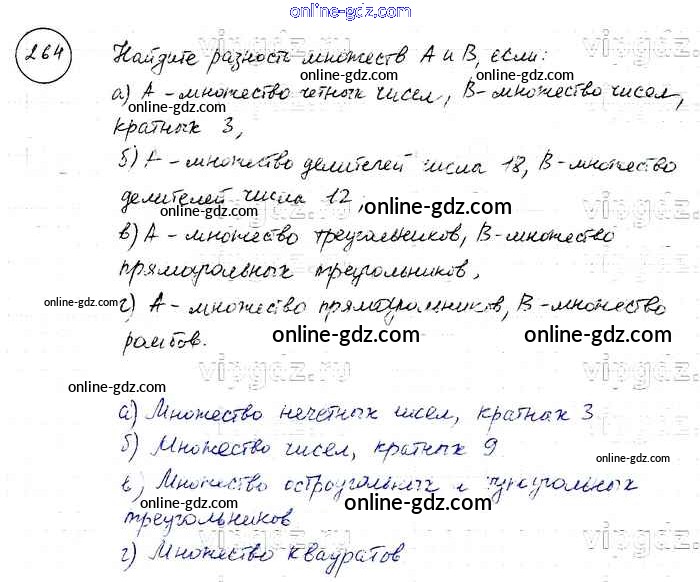 online-gdz.com
264 Найдите разность множеств А и В, если:
online-gdz.com online-gdz.com
vipgdz.ru
а) А - множество четных чисел, В - множество чисел,
online-gdz.com online-gdz.com
кратных 3,
б) А - множество делителей числа 18, В - множество
делителей числа 12,
online-gdz.com online-gdz.com
vipgdz.ru
в) А - множество треугольников, В - множество
прямоугольных треугольников,
online-gdz.com
г) А - множество прямоугольников, В - множество
ромбов.
online-gdz.com online-gdz.com
vipgdz.ru vipgdz.ru
online-gdz.com
а) Множество нечетных чисел, кратных 3
online-gdz.com
б) Множество чисел, кратных 9
в) Множество остроугольных и тупоугольных
online-gdz.com online-gdz.com
треугольников
vipgdz.ru
г) Множество квадратов
online-gdz.com